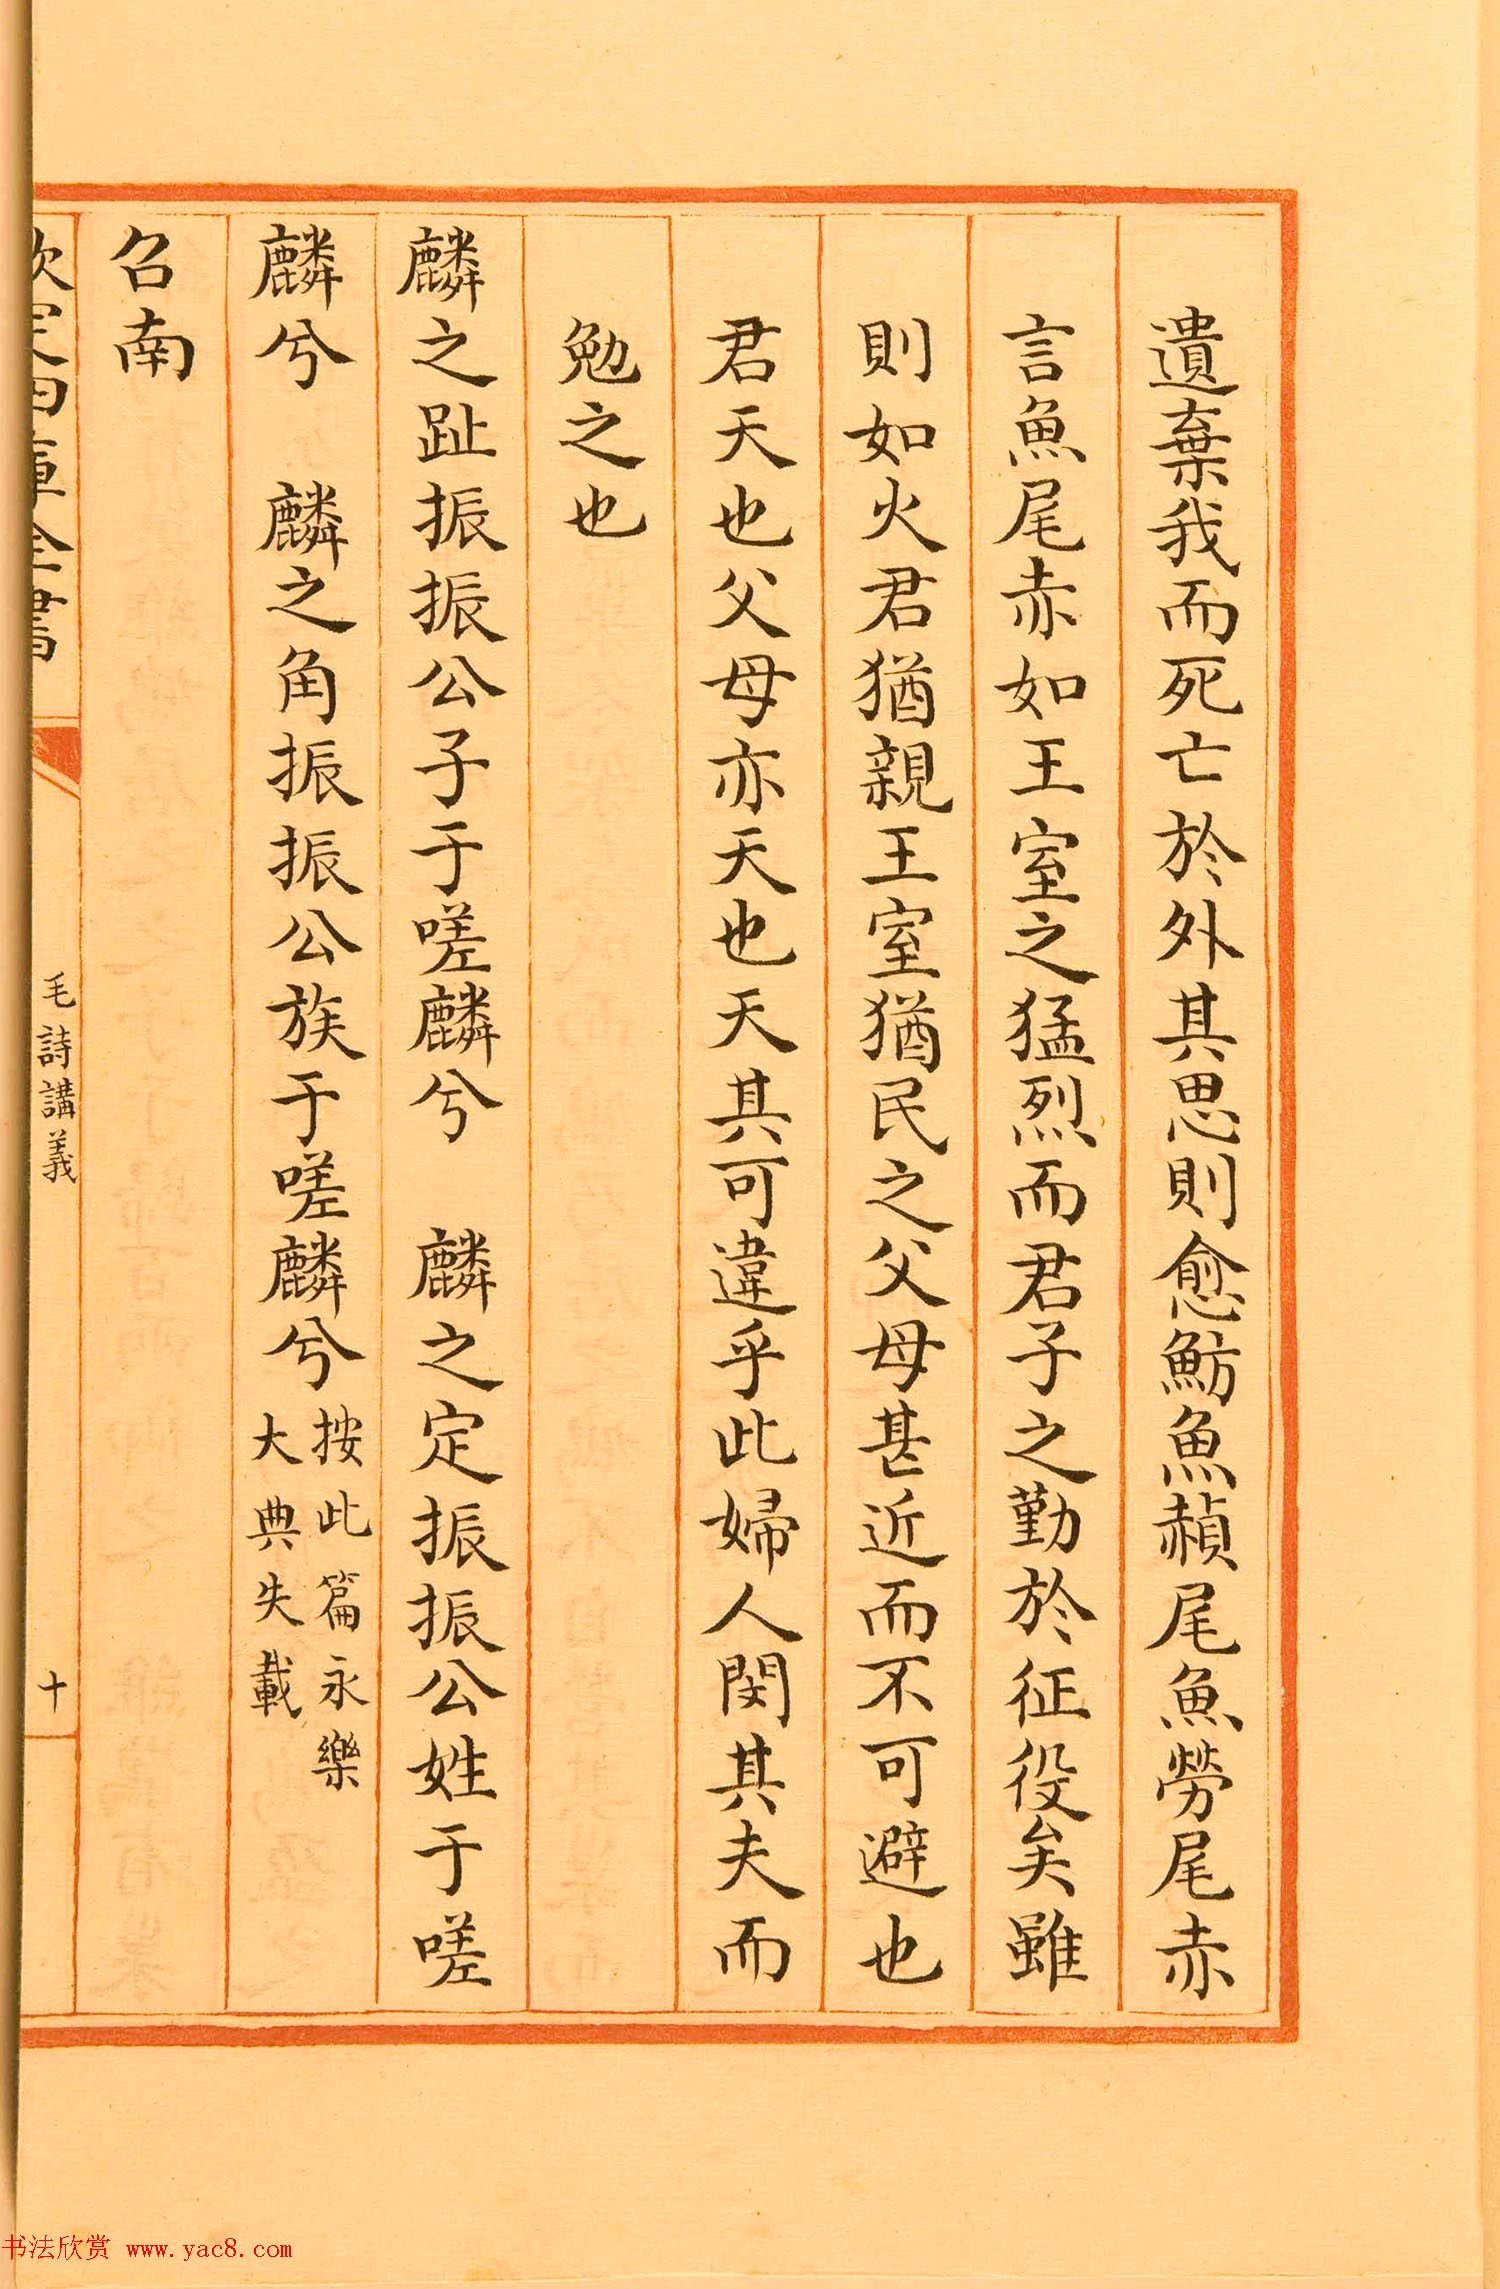 遺棄我而死亡於外其思則愈魴魚赬尾魚勞尾赤
言魚尾赤如王室之猛烈而君子之勤於征役矣雖
則如火君猶親王室猶民之父母甚近而不可避也
君天也父母亦天也天其可違乎此婦人閔其夫而
勉之也
麟之趾振振公子于嗟麟兮　麟之定振振公姓于嗟
麟兮　麟之角振振公族于嗟麟兮
按此篇永樂
大典失載
召南
欽定四庫全書
毛詩講義
十
书法欣赏 www.yac8.com